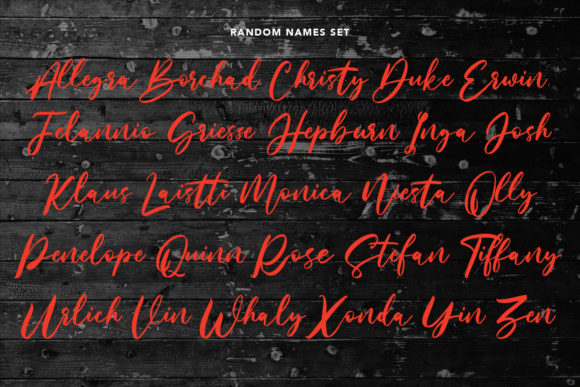 RANDOM NAMES SET
Allegra Borchad Christy Duke Erwin
Felannio Griesse Hepburn Inga Josh
Klaus Laistti Monica Niesta Olly
Penelope Quinn Rose Stefan Tiffany
Urlich Vin Whaly Xonda Yin Zen